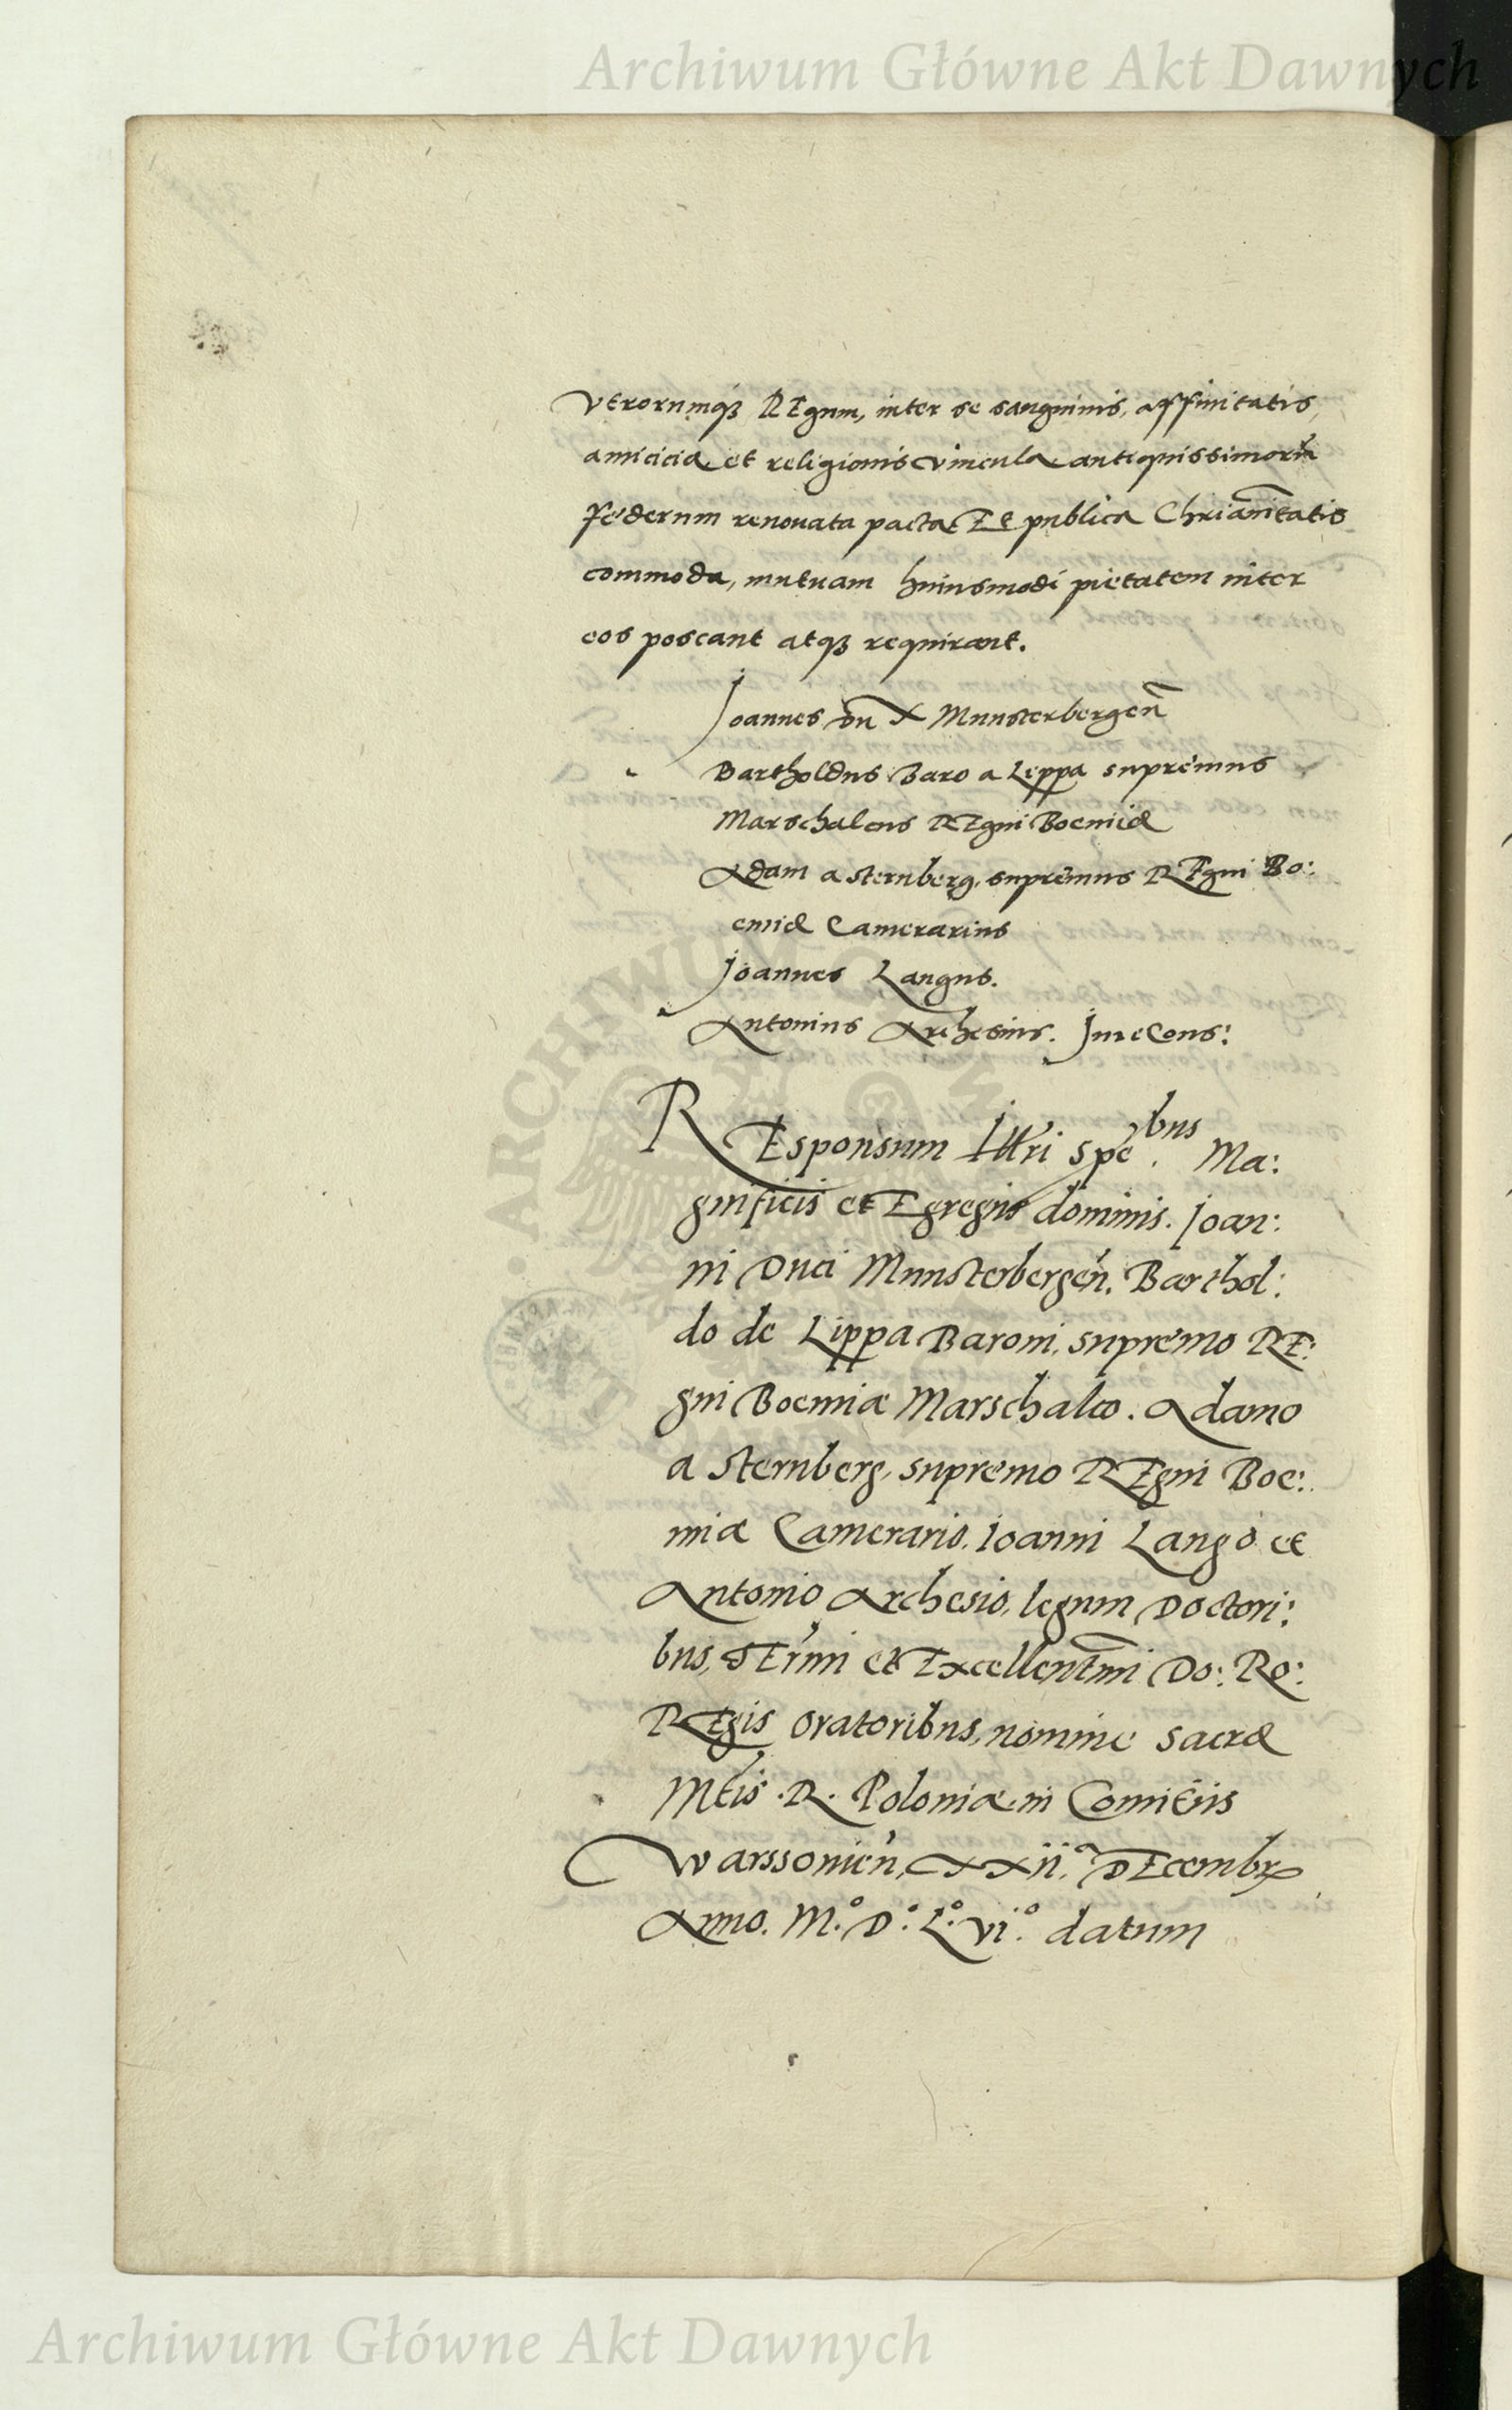 Archiwum Główne Akt Dawnych
Vtrorumq; REgum, inter se sanguinis, affinitatis,
amiciciæ et religionis vincula antiquissimorũ
féderum renouata pacta Et publica Chrianitatis
commoda, mutuam huiusmodi pietatem inter
eos poscant atq; requirant.
Joannes Munsterbergen̄
Bartholdus Baro a Leppa supremus
Marschalcus REgni Boemiæ
Adam a Sternberg, supremus REgni Bo:
emiæ Camerarius
Joannes Langus.
Antonius Archesius. JureCons:
REsponsum Illri spe.bus Ma:
gnificis et Egregiis dominis. Joan:
ni Duci Munsterbergen̄. Barthol:
do de Lippa Baroni, supremo RE:
gni Boemiæ Marschalco. Adamo
a Sternberg, supremo REgni Boe:
miæ Camerario. Ioanni Lango et
Antonio Archesio, legum Doctori:
bus, SErmi et Excellentmi Do: Ro:
REgis oratoribus, nomine Sacræ
Mtis. R. Poloniæ in Comitiis
Warssonien̄, XXii.a DEcembr
Anno. M.o D.o L.o vi.o datum
ARCHIWUM
Archiwum Główne Akt Dawnych